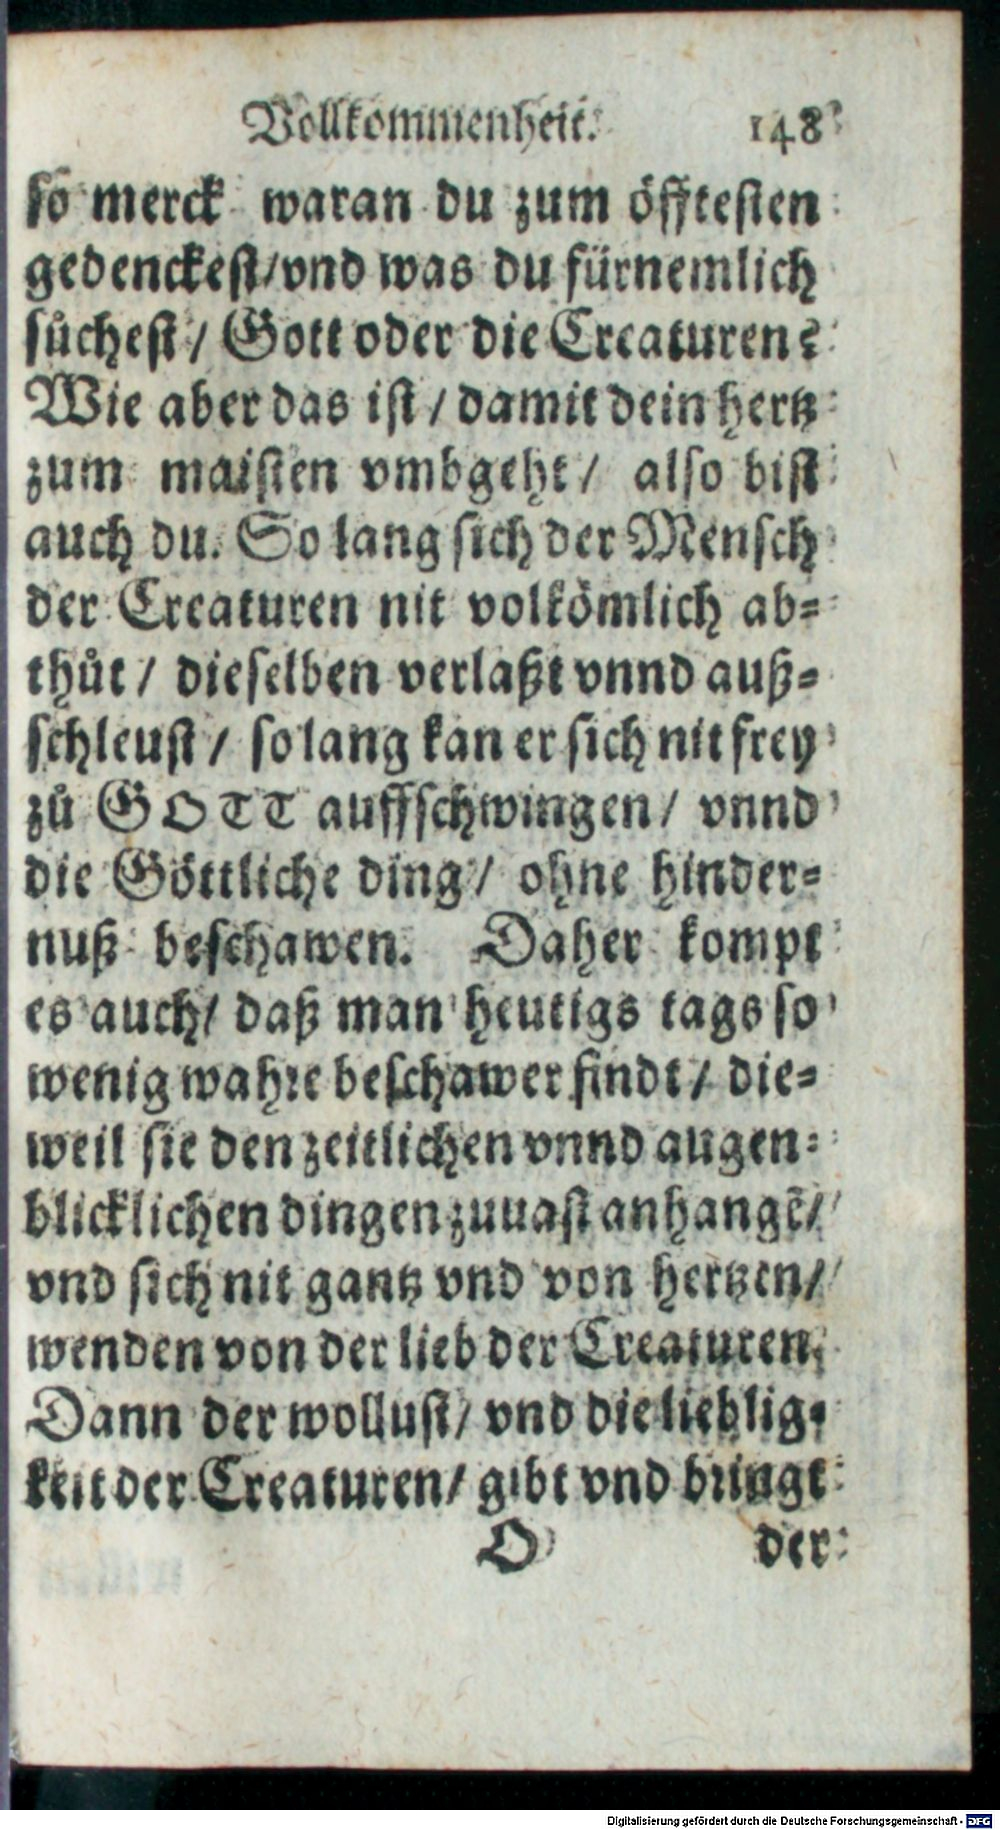 Vollkommenheit. 148
so merck waran du zum öfftesten
gedenckest/vnd was du fürnemlich
sůchest / Gott oder die Creaturen?
Wie aber das ist / damit dein hertz
zum maisten vmbgeht / also bist
auch du. So lang sich der Mensch
der Creaturen nit volkömlich ab=
thůt / dieselben verlaßt vnnd auß=
schleust / so lang kan er sich nit frey
zů GOTT auffschwingen / vnnd
die Göttliche ding / ohne hinder=
nuß beschawen. Daher kompt
es auch/ daß man heutigs tags so
wenig wahre beschawer findt / die=
weil sie den zeitlichen vnnd augen=
blicklichen dingen zuuast anhangē/
vnd sich nit gantz vnd von hertzen/
wenden von der lieb der Creaturen.
Dann der wollust/ vnd die lieblig=
keit der Creaturen/ gibt vnd bringt
O der
Digitalisierung gefördert durch die Deutsche Forschungsgemeinschaft - DFG